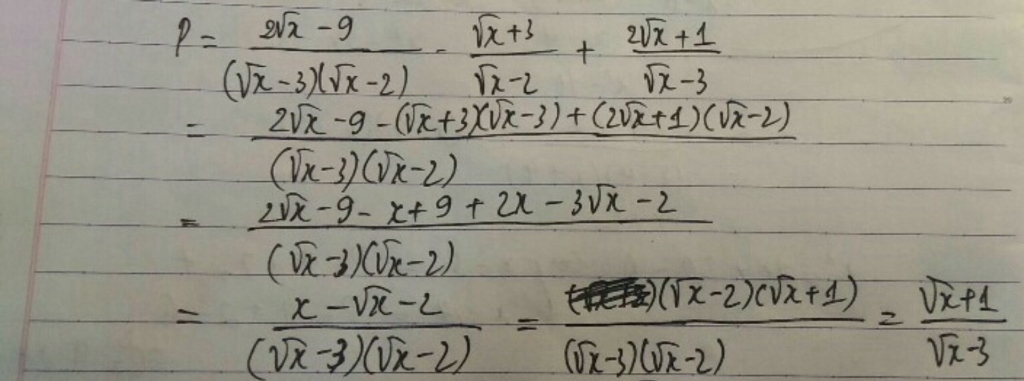 P = \frac{2\sqrt{x} - 9}{(\sqrt{x} - 3)(\sqrt{x} - 2)} - \frac{\sqrt{x} + 3}{\sqrt{x} - 2} + \frac{2\sqrt{x} + 1}{\sqrt{x} - 3}
= \frac{2\sqrt{x} - 9 - (\sqrt{x} + 3)(\sqrt{x} - 3) + (2\sqrt{x} + 1)(\sqrt{x} - 2)}{(\sqrt{x} - 3)(\sqrt{x} - 2)}
= \frac{2\sqrt{x} - 9 - x + 9 + 2x - 3\sqrt{x} - 2}{(\sqrt{x} - 3)(\sqrt{x} - 2)}
= \frac{x - \sqrt{x} - 2}{(\sqrt{x} - 3)(\sqrt{x} - 2)} = \frac{(\sqrt{x} - 2)(\sqrt{x} + 1)}{(\sqrt{x} - 3)(\sqrt{x} - 2)} = \frac{\sqrt{x} + 1}{\sqrt{x} - 3}